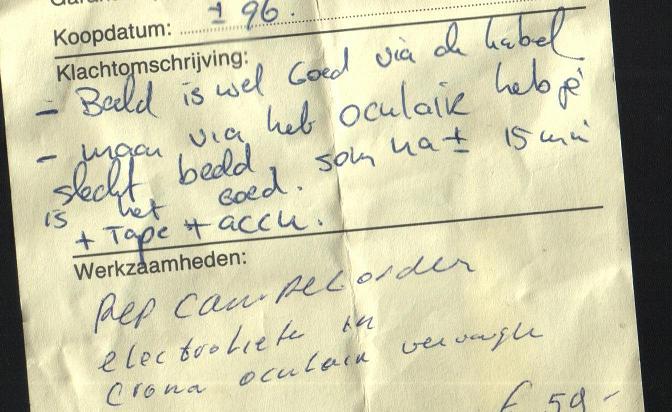 Koopdatum: ± 96.
Klachtomschrijving:
- Beeld is wel Goed via de kabel
- maar via het oculair heb je
slecht beeld. som na ± 15 min
is het Goed.
+ Tape + accu.
Werkzaamheden:
Rep camrecorder
electroliete in
Crona oculair vervangen
f 59,-